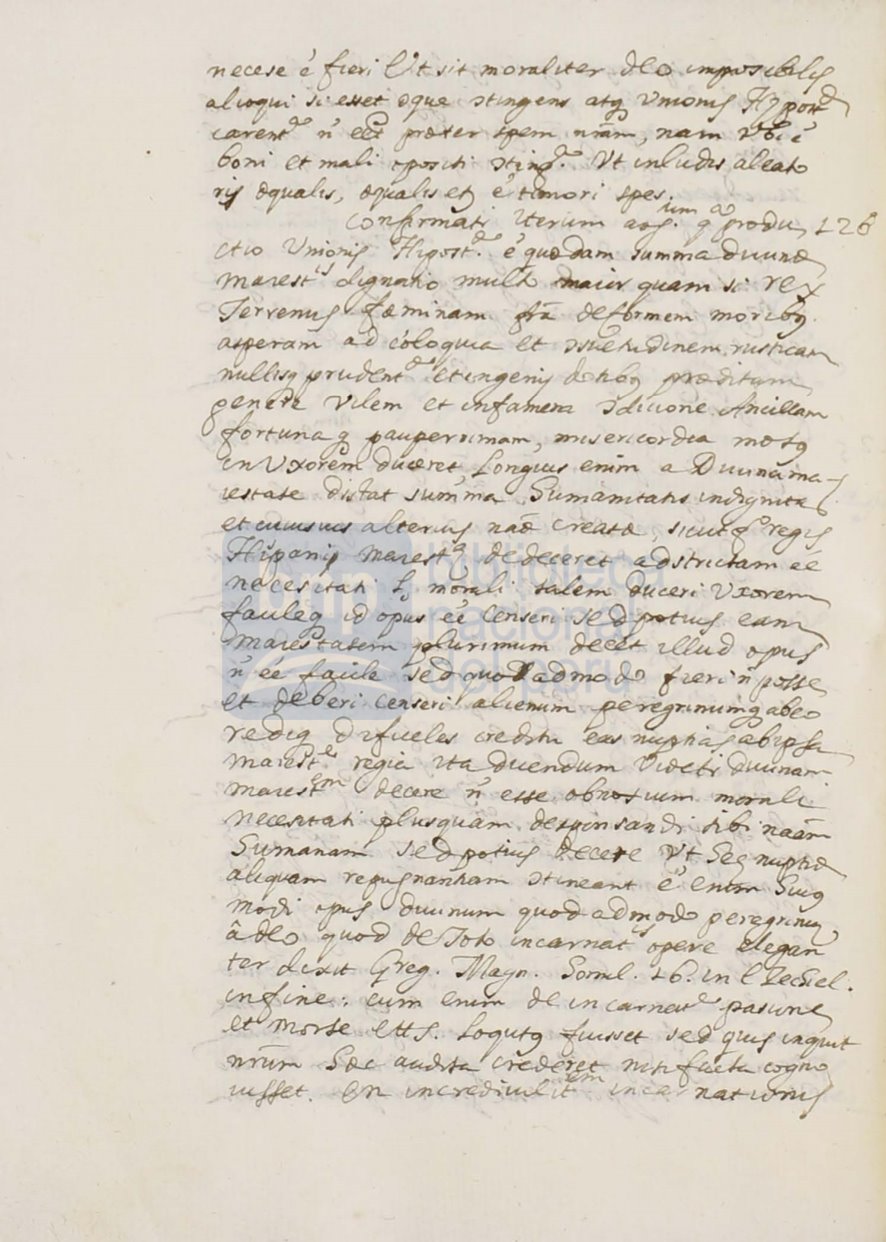 necese ẽ fieri Ut sit moraliter deo imposibilis
alioqui si esset æque ɔtingens atq Unionis Hypost
carent n̄ eēt præter spem nrām, nam Ubi ẽ
boni et mali opositi ɔting. Ut in ludis aleato
rijs æqualis, æqualis etz ẽ timori spes.
Confirmati iterum argum. qa produ 126
ctio Unionis Hipost. ẽ quædam summa diuinæ
Maiestis dignatio multo maior quam si rex
Terrenus fæminam deformem moribq
asperam ad cōloquia et ɔsuetudinem rusticam
nullisq prudent et ingenij dotibq præditam
genere Vilem et infamem ɔdicione Ancillam
fortunaq pauperrimam, misericordia motq
in Uxorem duceret Longius enim a Diuina ma
iestate distat summa Humanitatis indignitas
et cuiusuis alterius nāæ creatæ, sicut regis
Hispanis maiest. dedeceret adstrictam ēē
necesitati morali talem duceri Uxorem
facileq id opus ēē Censeri sed potius eam
maiestatem plurimum decet illud opus
n̄ ēē facile sed quodadmodo fieri n̄ posse
et deberi Censeri alienum peregrinumq ab eo
redig dificeles creditu eas nuptias ab ipsa
maieste regia ita dicendum Videti diuinam
maiestem decere n̄ esse obnoxium morali
necesitati plusquam desponsandi sibi naām
Humanam sed potius decere Ut Hec nuptiæ
aliquam repugnantiam ɔtineant ẽ enim Huiq
modi opus diuinum quodadmodo peregrinum
â deo quod de Toto incarnatis opere elegan
ter dixit Greg. Magn. Homl. 26. in Ezechiel.
in fine: cum enim de incarnate pasione
et morte etts. Loqutq fuisset sed quis inquit
nrūm Hæc audita crederet nisi facta cogno
uisset. En incrediuilitem incarnationis